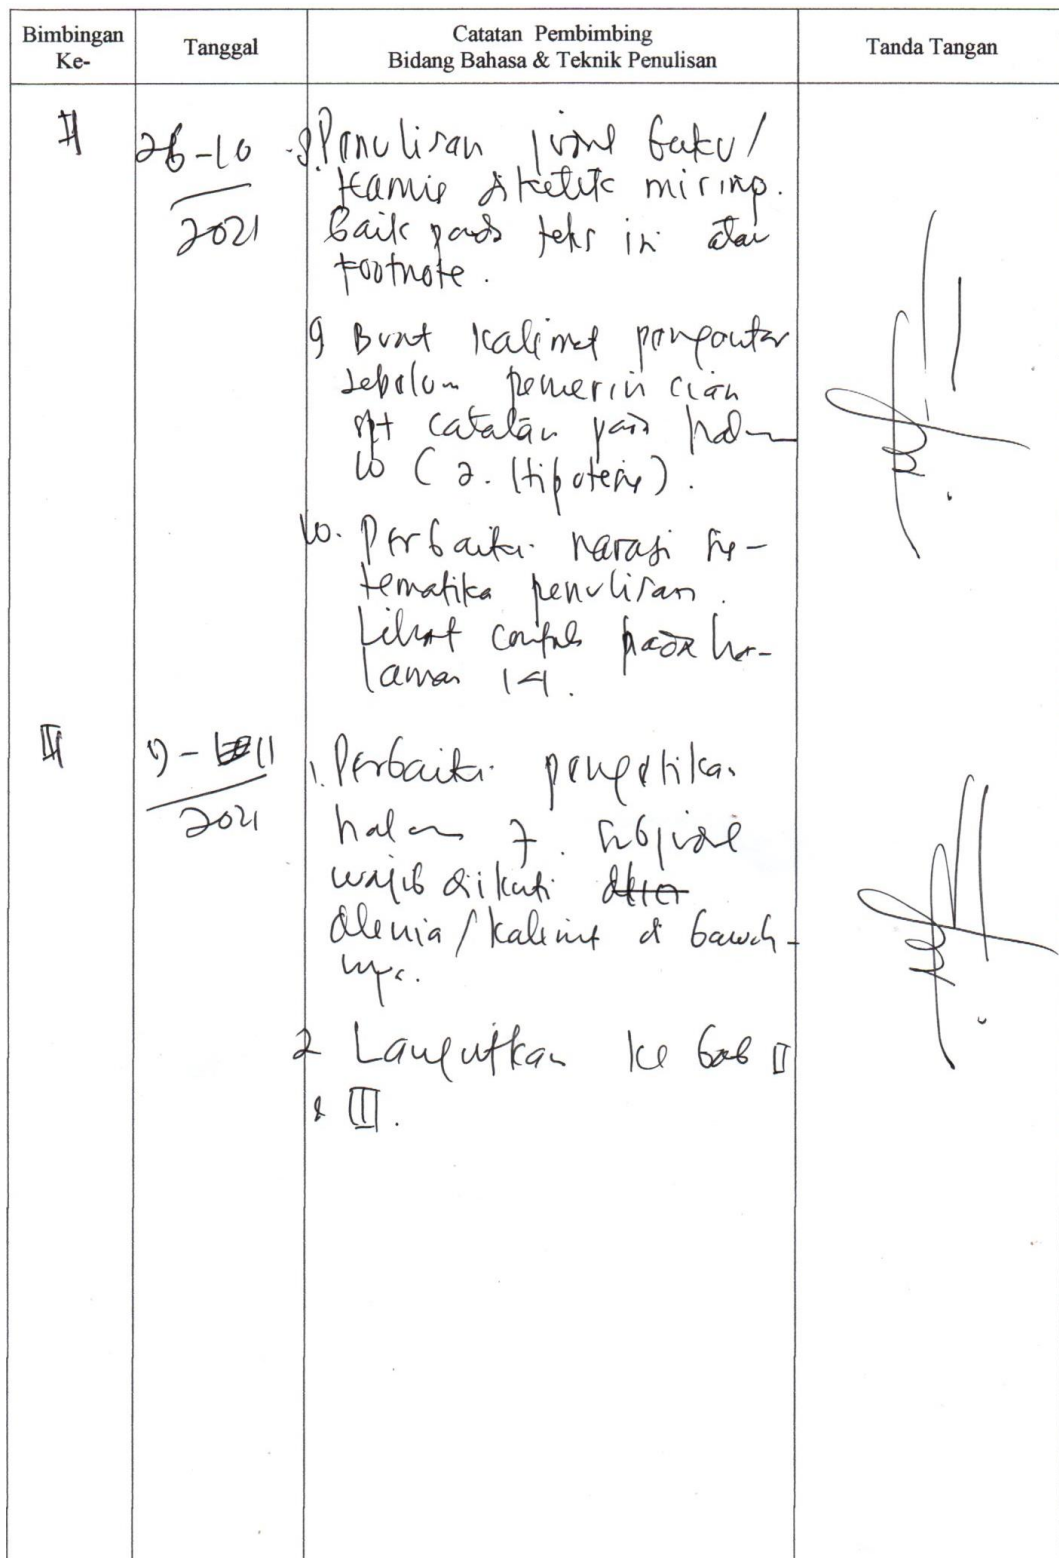 Bimbingan Ke-
Tanggal
Catatan Pembimbing
Bidang Bahasa & Teknik Penulisan
Tanda Tangan
II
26-10
2021
8. Penulisan judul buku/
diketik miring.
Baik pada teks ini atau
Footnote.
9 Buat kalimat pengantar
sebelum pemerincian
spt catatan pada halm
10 (2. Hipotesis).
10. Perbaiki narasi sis-
tematika penulisan.
Lihat contoh pada ha-
laman 14.
III
9-11
2021
1. Perbaiki pengetikan
halam 7. subjudul
wajib diikuti
alenia/kalimat di bawah-
nya.
2 Lanjutkan ke bab II
& III.